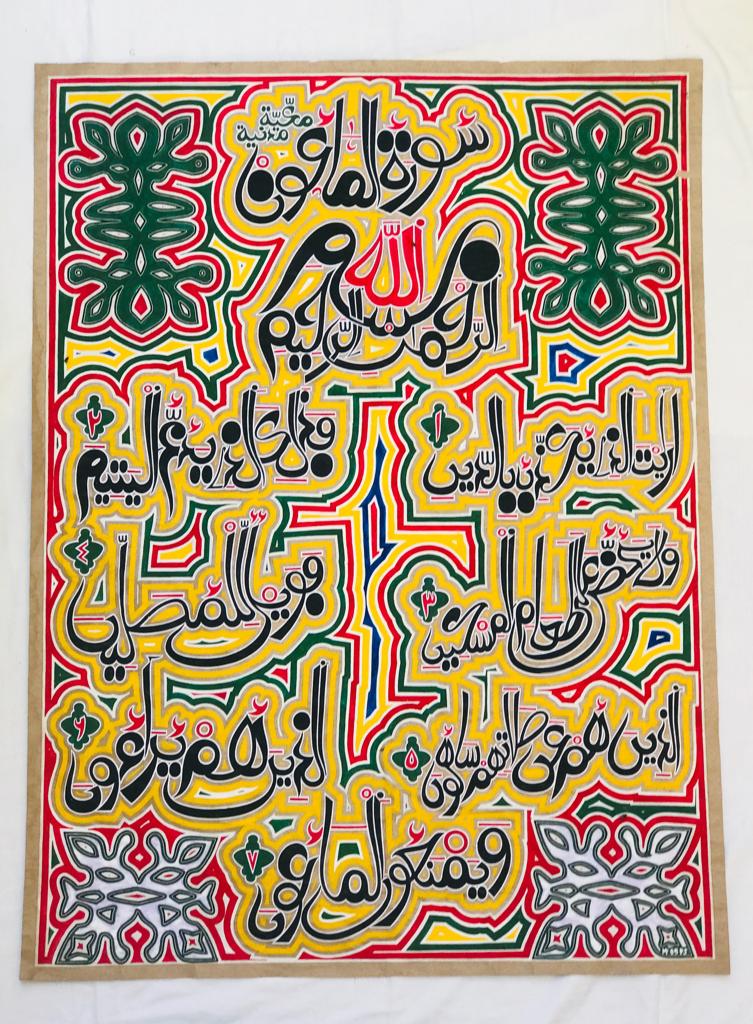 سورة الماعون
مكية
مدنية
بسم الله
الرحمن الرحيم
أرءيت الذي يكذب بالدين ١
فذلك الذي يدع اليتيم ٢
ولا يحض على طعام المسكين ٣
فويل للمصلين ٤
الذين هم عن صلاتهم ساهون ٥
الذين هم يراءون ٦
ويمنعون الماعون ٧